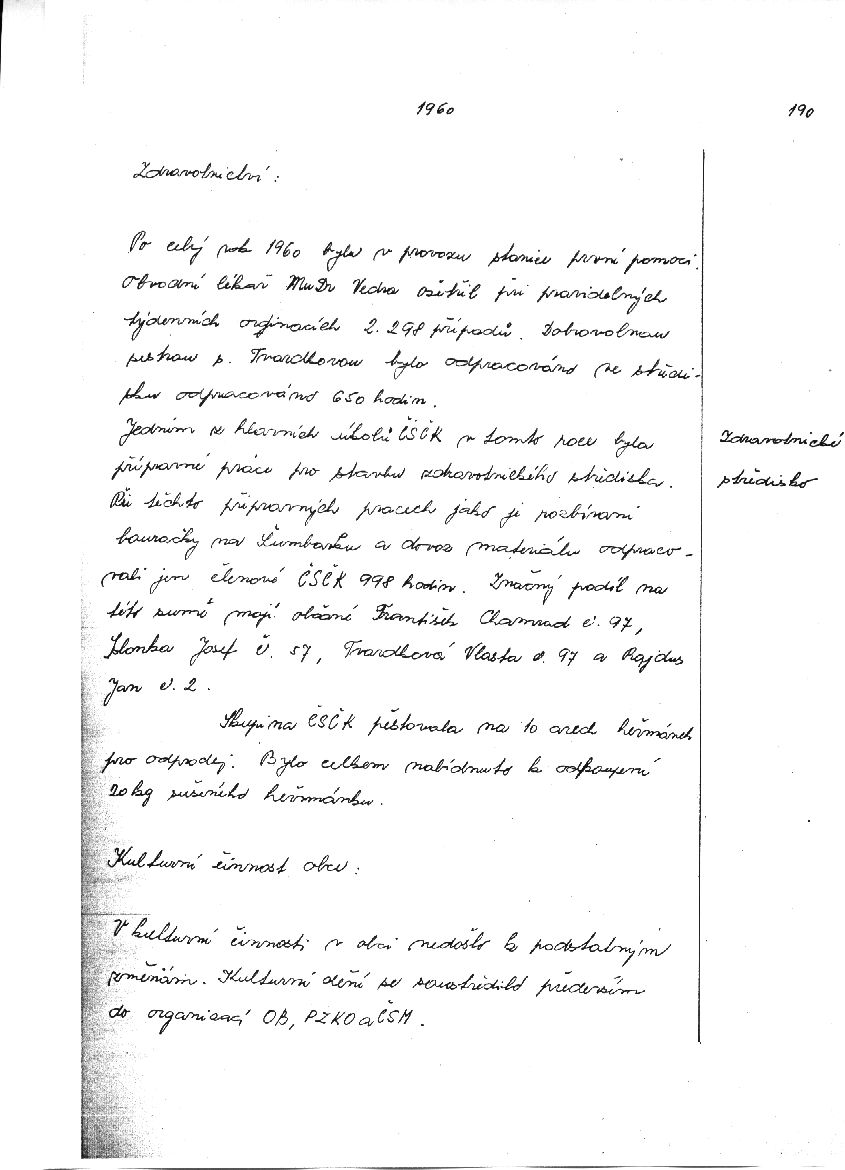 1960
190
Zdravotnictví:
Po celý rok 1960 byla v provozu stanice první pomoci.
Obvodní lékař MuDr Vecka ošetřil při pravidelných
týdenních orginacích 2.298 případů. Dobrovolnou
sestrou s. Tvardkovou bylo odpracováno ve středi-
sku odpracováno 650 hodin.
Jedním z hlavních úkolů ČSČK v tomto roce byla
přípravné práce pro stavbu zdravotnického střediska.
Zdravotnické
středisko
Při těchto přípravných pracech jako je rozbíraní
bouračky na Šumbarku a dovoz materiálu odpraco-
vali jen členové ČSČK 998 hodin. Značný podíl na
této sumě mají občané František Chamrad č. 97,
Josef č. 57, Tvardková Vlasta č. 97 a Rajdus
Jan č. 2.
Skupina ČSČK pěstovala na 10 arech heřmánek
pro odprodej. Bylo celkem nabídnuto k odkoupení
20 kg sušeného heřmánku.
Kulturní činnost obce:
V kulturní činnosti v obci nedošlo k podstatným
změnám. Kulturní dění se soustředilo především
do organisací OB, PZKO a ČSM.